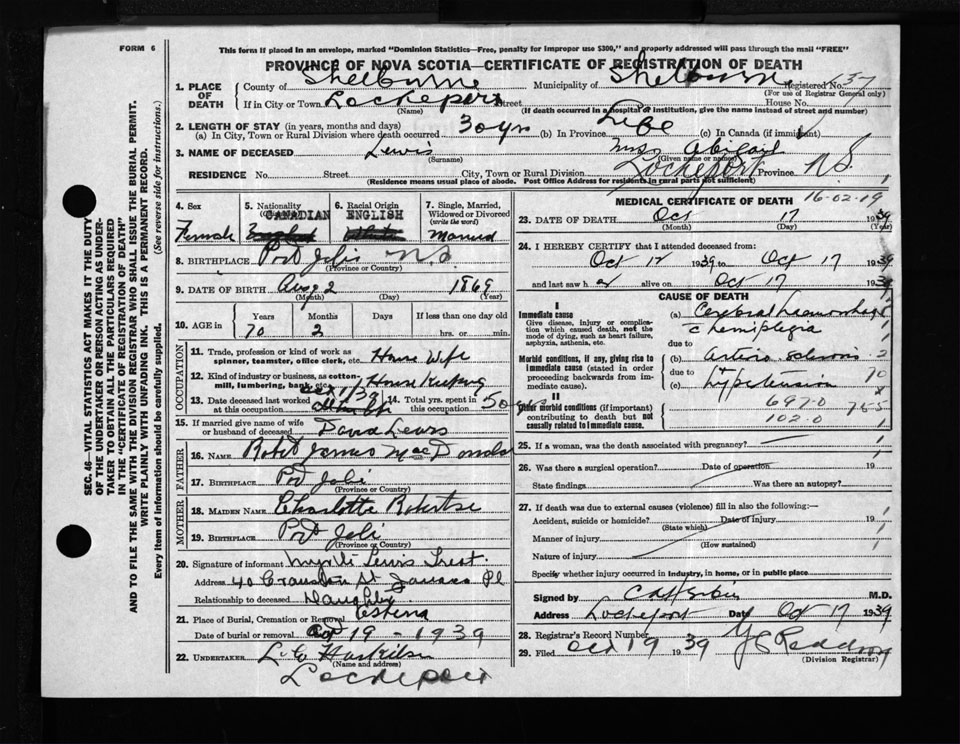 FORM 6
This form if placed in an envelope, marked "Dominion Statistics—Free, penalty for improper use $300," and properly addressed will pass through the mail "FREE"
PROVINCE OF NOVA SCOTIA—CERTIFICATE OF REGISTRATION OF DEATH
1. PLACE OF DEATH
County of Shelburne Municipality of Shelburne Registered No. 37
(For use of Registrar General only)
If in City or Town Lockeport Street House No.
(Name) (If death occurred in a hospital or institution, give the name instead of street and number)
2. LENGTH OF STAY (in years, months and days)
(a) In City, Town or Rural Division where death occurred 30 yrs (b) In Province Life (c) In Canada (if immigrant)
3. NAME OF DECEASED Lewis Mrs Abigail
(Surname) (Given name or names)
RESIDENCE No. Street City, Town or Rural Division Lockeport Province N.S.
(Residence means usual place of abode. Post Office Address for residents in rural parts not sufficient)
SEC. 46—VITAL STATISTICS ACT MAKES IT THE DUTY
OF THE UNDERTAKER OR PERSON ACTING AS UNDER-
TAKER TO OBTAIN ALL THE PARTICULARS REQUIRED
IN THE "CERTIFICATE OF REGISTRATION OF DEATH"
AND TO FILE THE SAME WITH THE DIVISION REGISTRAR WHO SHALL ISSUE THE BURIAL PERMIT.
WRITE PLAINLY WITH UNFADING INK. THIS IS A PERMANENT RECORD.
Every item of information should be carefully supplied. (See reverse side for instructions.)
4. Sex
Female
5. Nationality
CANADIAN
6. Racial Origin
ENGLISH
7. Single, Married, Widowed or Divorced
(write the word)
Married
8. BIRTHPLACE Port Jolie N.S
(Province or Country)
9. DATE OF BIRTH Aug 2 1869
(Month) (Day) (Year)
10. AGE in
Years Months Days If less than one day old
70 2 hrs. or min.
OCCUPATION
11. Trade, profession or kind of work as spinner, teamster, office clerk, etc. House Wife
12. Kind of industry or business, as cotton-mill, lumbering, bank, etc. House Keeping
13. Date deceased last worked at this occupation
14. Total yrs. spent in this occupation 50
15. If married give name of wife or husband of deceased David Lewis
FATHER
16. NAME Robert James MacDonald
17. BIRTHPLACE Port Jolie
(Province or Country)
MOTHER
18. MAIDEN NAME Charlotte Robertson
19. BIRTHPLACE Port Jolie
(Province or Country)
20. Signature of informant Lewis
Address 40 St Jamaica Pl
Relationship to deceased Daughter
21. Place of Burial, Cremation or Removal
Date of burial or removal Oct 19 - 1939
22. UNDERTAKER L.G.
(Name and address)
Lockeport
MEDICAL CERTIFICATE OF DEATH 16-02-19
23. DATE OF DEATH Oct 17 1939
(Month) (Day) (Year)
24. I HEREBY CERTIFY that I attended deceased from:
Oct 12 1939 to Oct 17 1939
and last saw h er alive on Oct 17 1939
CAUSE OF DEATH
I
Immediate cause
Give disease, injury or complication which caused death, not the mode of dying, such as heart failure, asphyxia, asthenia, etc.
(a) Cerebral Haemorrhage
c hemiplegia
due to
Morbid conditions, if any, giving rise to immediate cause (stated in order proceeding backwards from immediate cause).
(b) Arterio sclerosis
due to
(c) Hypertension
II
Other morbid conditions (if important) contributing to death but not causally related to immediate cause.
697-0
102-0
755
25. If a woman, was the death associated with pregnancy?
26. Was there a surgical operation? Date of operation 19
State findings Was there an autopsy?
27. If death was due to external causes (violence) fill in also the following:—
Accident, suicide or homicide? Date of injury 19
(State which)
Manner of injury
(How sustained)
Nature of injury
Specify whether injury occurred in industry, in home, or in public place
Signed by M.D.
Address Lockeport Date Oct 17 1939
28. Registrar's Record Number
29. Filed Oct 19 1939
(Division Registrar)